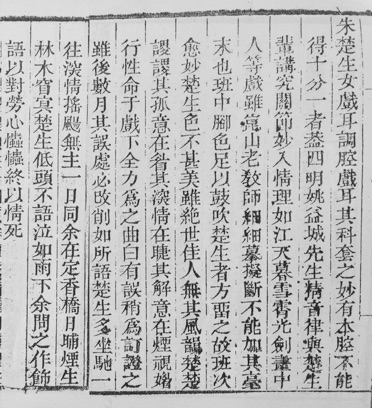 朱楚生女戲耳調腔戲耳其科套之妙有本腔不能
得十分一者葢四明姚益城先生精音律與楚生
輩講究關節妙入情理如江天暮雪霄光劍畫中
人等戲雖崑山老教師細細摹擬斷不能加其毫
末也班中腳色足以鼓吹楚生者方畱之故班次
愈妙楚生色不甚美雖絕世佳人無其風韻楚楚
謖謖其孤意在眉其深情在睫其解意在煙視媚
行性命于戲下全力為之曲白有誤稍為訂證之
雖後數月其誤處必改削如所語楚生多坐馳一
往深情搖颺無主一日同余在定香橋日晡煙生
林木窅冥楚生低頭不語泣如雨下余問之作飾
語以對勞心終以情死